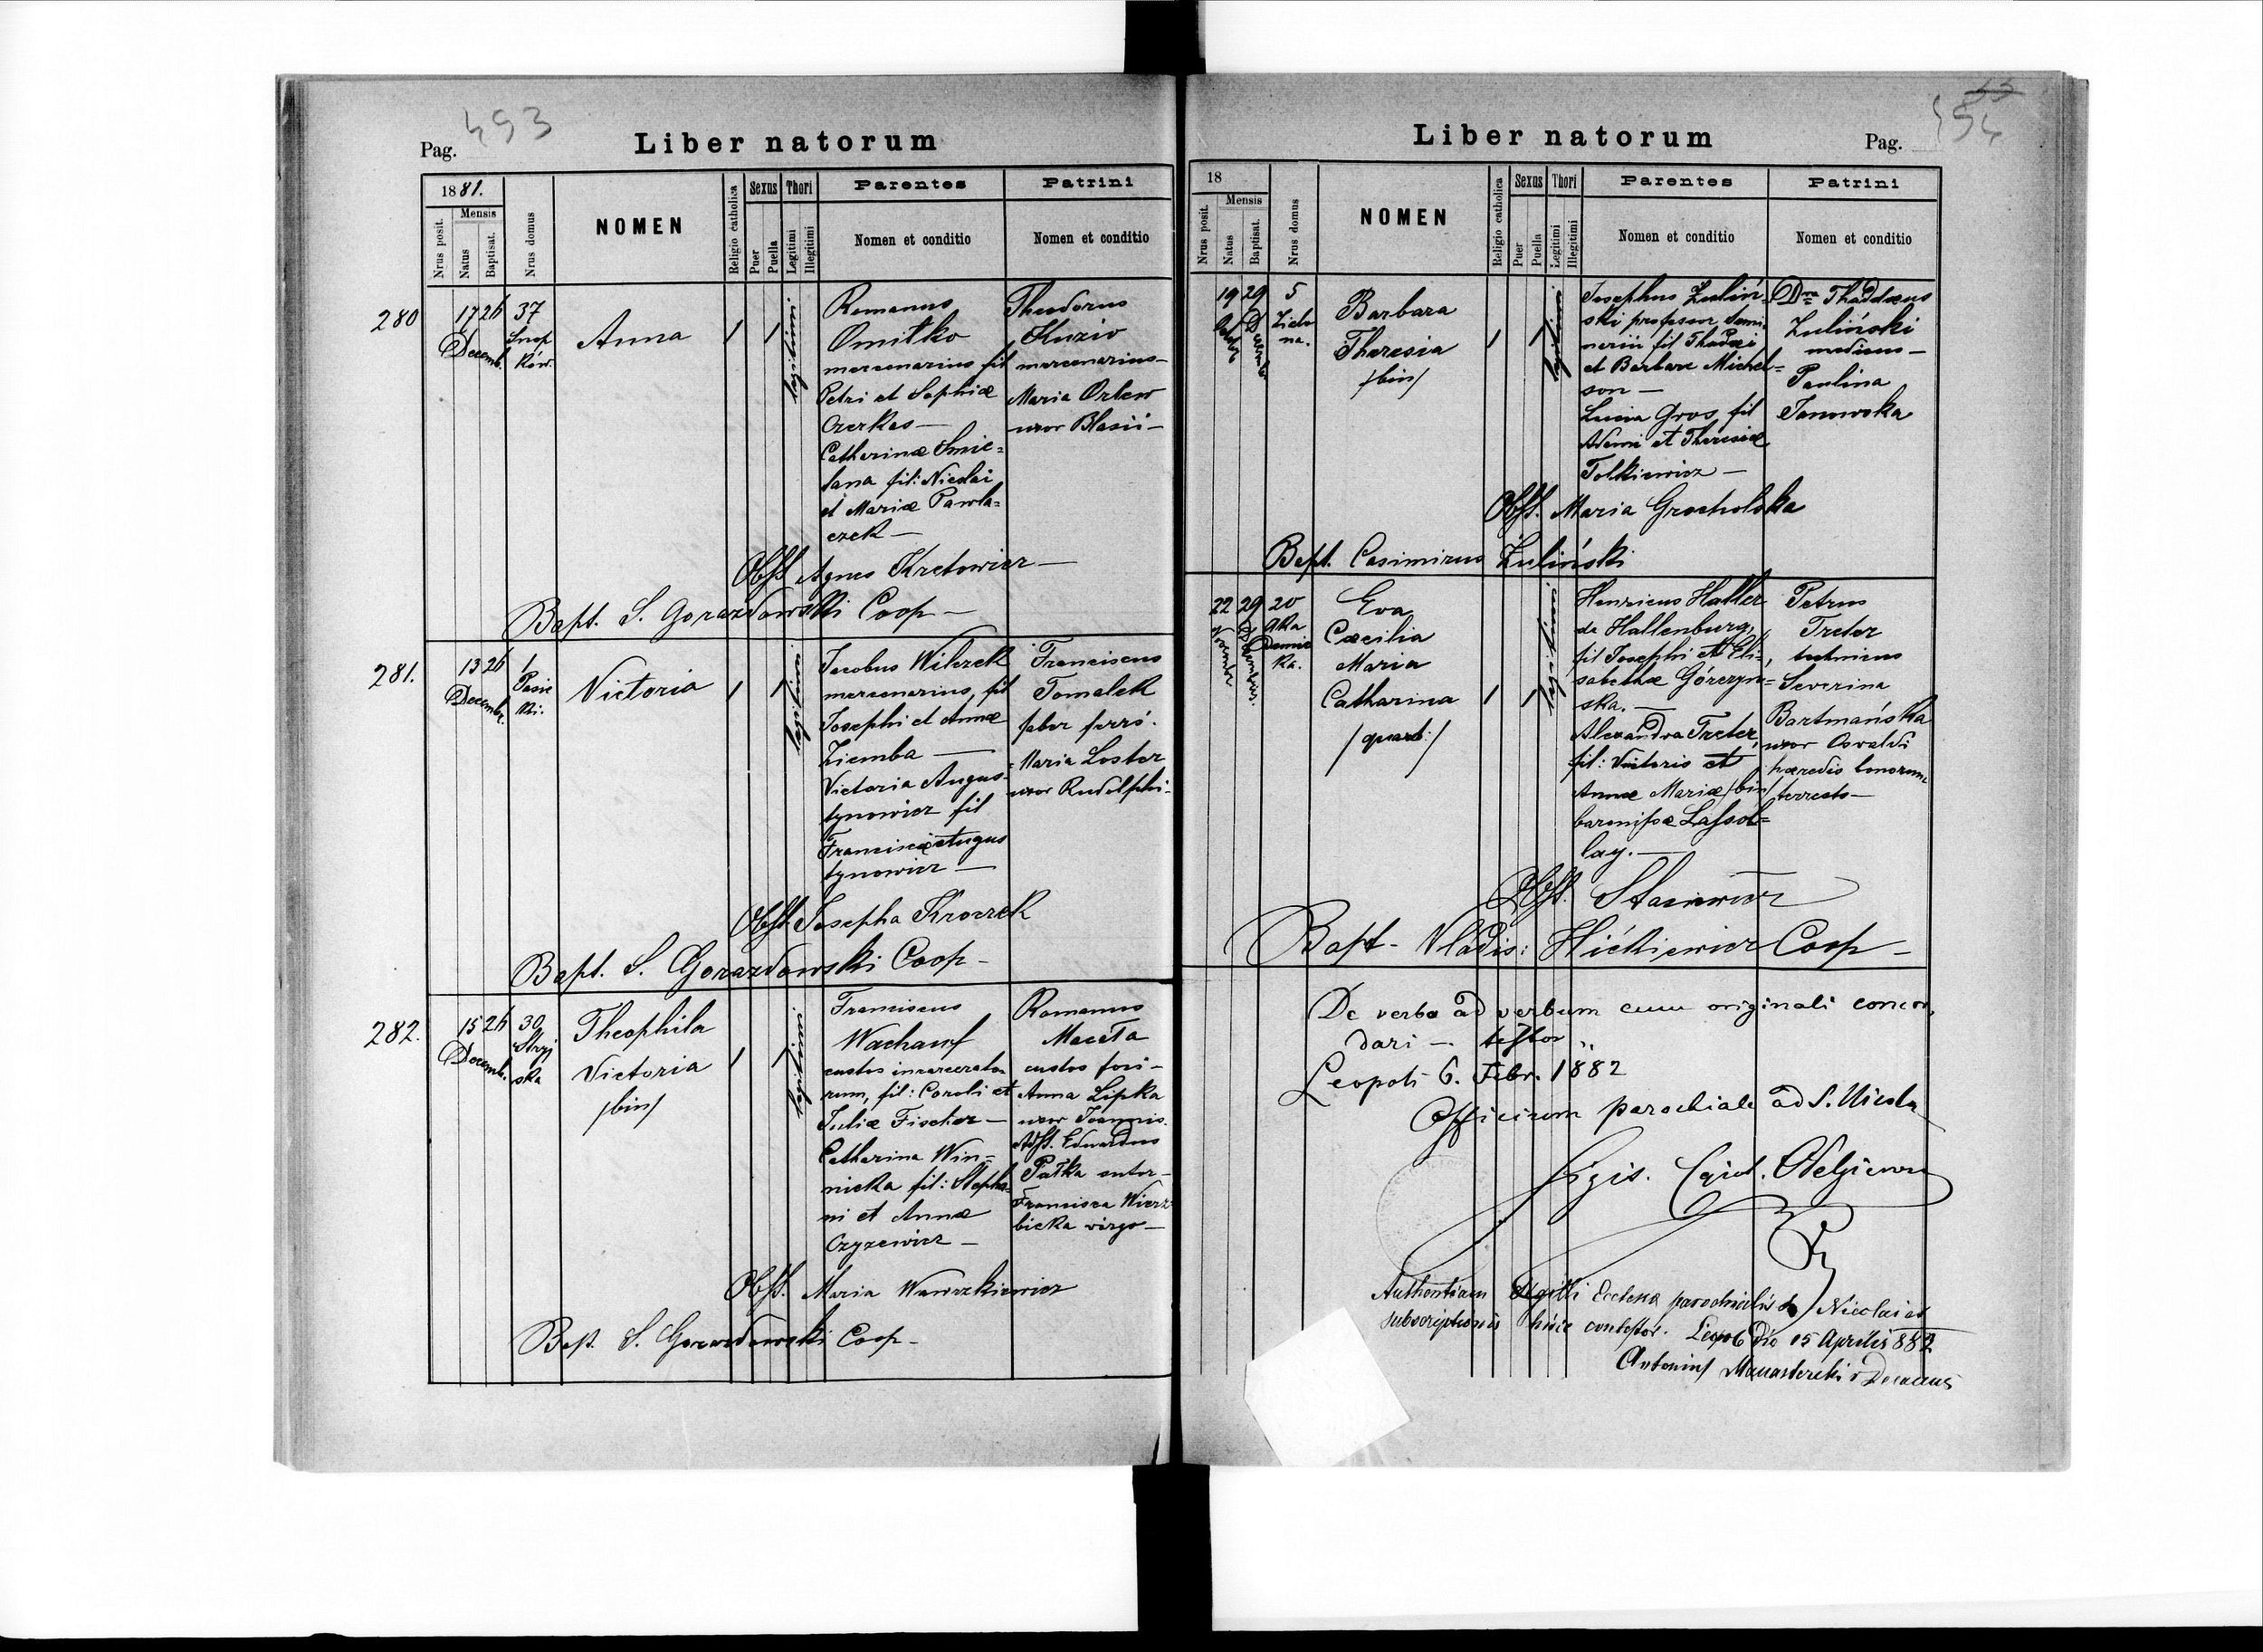 493
Pag.
Liber natorum
1881.
Nrus posit.
Mensis
Natus
Baptisat.
Nrus domus
NOMEN
Religio catholica
Sexus
Puer
Puella
Thori
Legitimi
Illegitimi
Parentes
Nomen et conditio
Patrini
Nomen et conditio
280
17 26
Decemb.
37
Snop
ków.
Anna
1
1
legitimi
Romanus
Omitko
mercenarius fil
Petri et Sophiæ
Czerkas —
Catharinæ Smie=
tana fil: Nicolai
et Mariæ Pawla=
czek —
Theodorus
Kuzio
mercenarius —
Maria Orlew
uxor Blasii —
Obst. Agnes Kretowicz —
Bapt. S. Gorazdowski Coop —
281.
13 26
Decembr.
1
Pasie
ki.
Victoria
1
1
legitimi
Jacobus Wilczek
mercenarius, fil
Josephi et Annæ
Ziemba —
Victoria Augus-
tynowicz fil
Franciscæ Augus
tynowicz —
Franciscus
Tomalek
faber ferr.
Maria Loster
uxor Rudolphi -
Obst. Josepha Kroczek
Bapt. S. Gorazdowski Coop -
282.
15 26
Decemb.
30
Stryj
ska
Theophila
Victoria
/bin/
1
1
legitimi
Franciscus
custos incarcerato
rum, fil: Caroli et
Juliæ Fischer —
Catharina Win=
nicka fil: Stepha
ni et Annæ
Czyzewicz —
Romanus
Maceta
custos fori —
Anna Lipka
uxor Joannis.
Adst. Eduardus
Patka sutor -
Francisca Wierz
bicka virgo —
Obst. Maria Wawrzkiewicz
Bapt. S. Gorazdowski Coop -
Liber natorum
Pag.
18
Nrus posit.
Mensis
Natus
Baptisat.
Nrus domus
NOMEN
Religio catholica
Sexus
Puer
Puella
Thori
Legitimi
Illegitimi
Parentes
Nomen et conditio
Patrini
Nomen et conditio
19 29
5
Zielo
na.
Barbara
Theresia
/bin/
1
1
legitimi
Josephus Żuliń=
ski professor semi
nerii fil Thadæi
et Barbaræ Michel=
son —
Lucia Gros fil
Adami et Theresiæ
Tolkiewicz —
Thaddæus
Żuliński
medicus —
Paulina
Janowska
Obst. Maria Grocholska
Bapt. Casimirus Żuliński
22 29
20
Aka
demic
ka.
Eva
Cæcilia
Maria
Catharina
1
1
legitimi
Henricus Haller
de Hallenburg,
fil Josephi et Eli=
sabethæ Górczyn=
ska. —
Alexandra Treter,
fil: Victoris et
Annæ Mariæ /bin/
baronissæ Lassol=
lay. —
Petrus
Treter
technicus
Severina
Bartmańska
uxor Osvaldi
hæredis bonorum
terrest —
Obst.
Bapt- Vladis: Hickiewicz Coop —
De verbo ad verbum cum originali concor
dari — testor
Leopoli 6. Febr. 1882
Officium parochiale ad S. Nicola
Authentiam sigilli Ecclesiæ parochialis S. Nicolai et
subscriptionis hisce contestor. Leopoli die 15 Aprilis 882
Antonius Manasterski Decanus